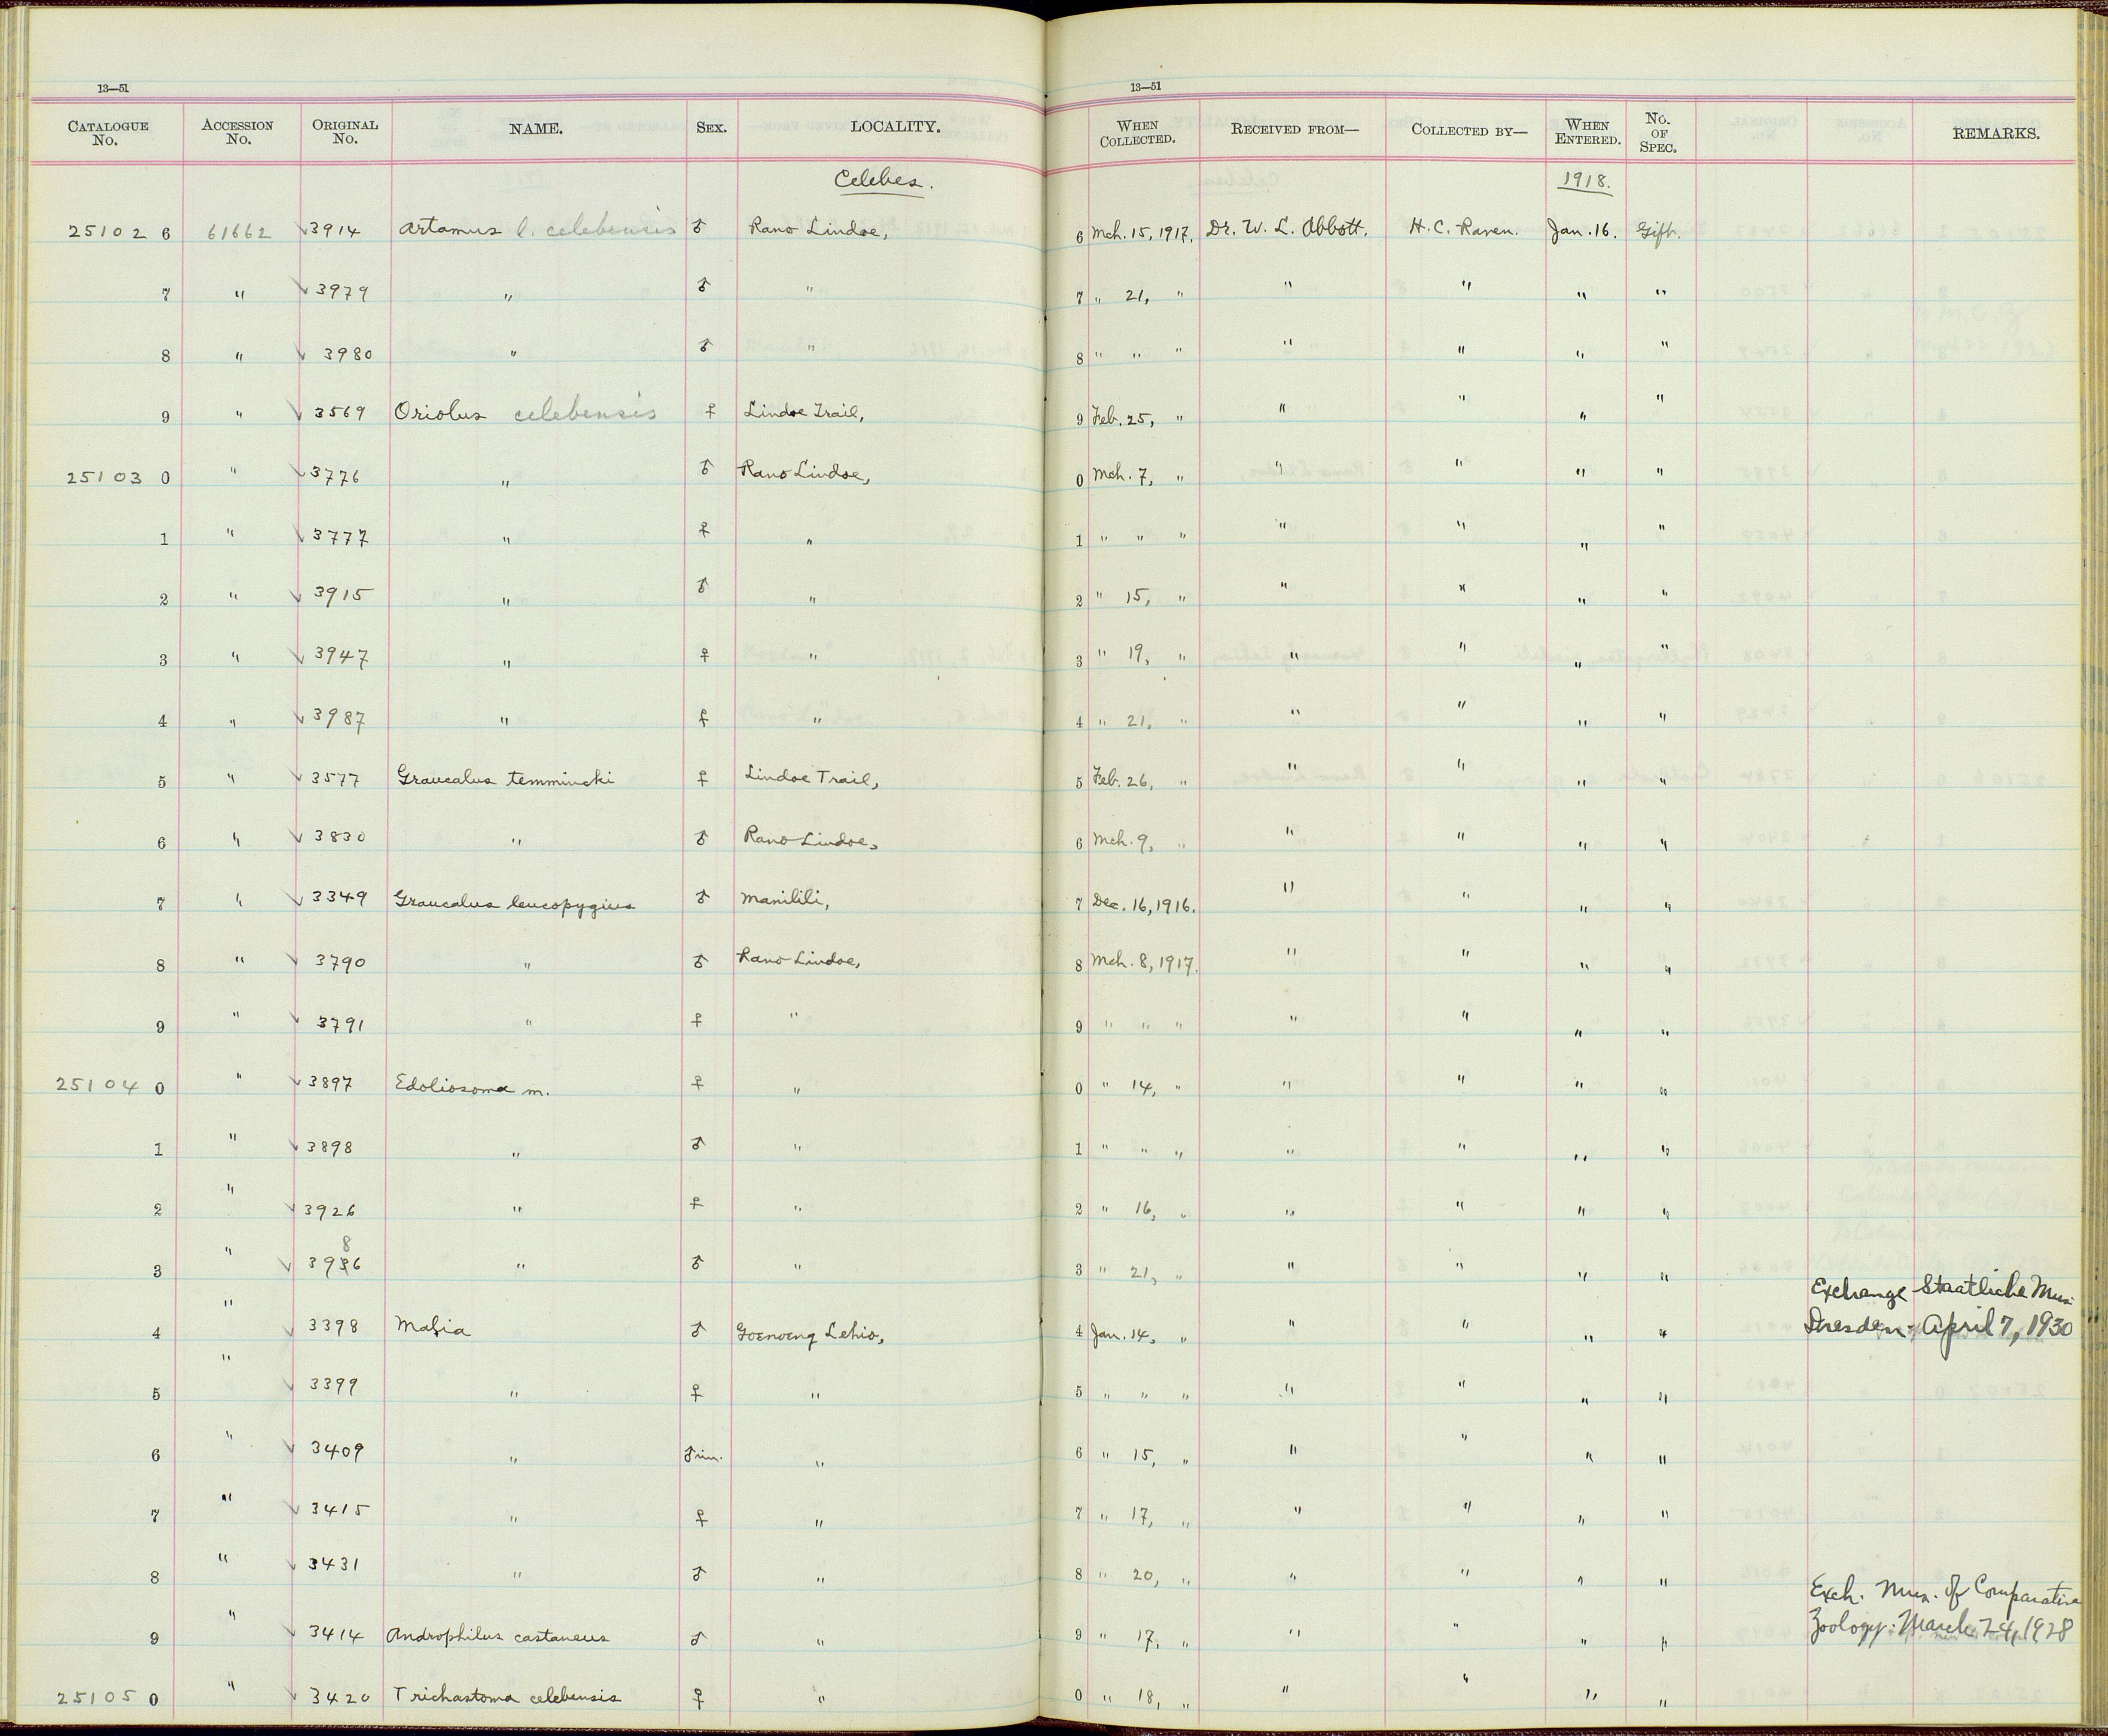 13—51
13—51
CATALOGUE No. ACCESSION No. ORIGINAL No. NAME. SEX. LOCALITY. WHEN COLLECTED. RECEIVED FROM— COLLECTED BY— WHEN ENTERED. No. OF SPEC. REMARKS.
Celebes. 1918.
25102 6 61662 √3914 Artamus l. celebensis ♂ Rano Lindoe, 6 Mch. 15, 1917. Dr. W. L. Abbott. H. C. Raven. Jan. 16. Gift.
7 " √3979 " ♂ " 7 " 21, " " " " "
8 " √3980 " ♂ " 8 " " " " " " "
9 " √3569 Oriolus celebensis ♀ Lindoe Trail, 9 Feb. 25, " " " " "
25103 0 " √3776 " ♂ Rano Lindoe, 0 Mch. 7, " " " " "
1 " √3777 " ♀ " 1 " " " " " " "
2 " √3915 " ♂ " 2 " 15, " " " " "
3 " √3947 " ♀ " 3 " 19, " " " " "
4 " √3987 " ♀ " 4 " 21, " " " " "
5 " √3577 Graucalus temmincki ♀ Lindoe Trail, 5 Feb. 26, " " " " "
6 " √3830 " ♂ Rano Lindoe, 6 Mch. 9, " " " " "
7 " √3349 Graucalus leucopygius ♂ Manilili, 7 Dec. 16, 1916. " " " "
8 " √3790 " ♂ Rano Lindoe, 8 Mch. 8, 1917. " " " "
9 " √3791 " ♀ " 9 " " " " " " "
25104 0 " √3897 Edoliosoma m. ♀ " 0 " 14, " " " " "
1 " √3898 " ♂ " 1 " " " " " " "
2 " √3926 " ♀ " 2 " 16, " " " " "
8
3 " √3936 " ♂ " 3 " 21, " " " " "
Exchange Staatliche Mus.
4 " √3398 Malia ♂ Goenoeng Lehio, 4 Jan. 14, " " " " " Dresden - April 7, 1930
5 " √3399 " ♀ " 5 " " " " " " "
6 " √3409 " ♂ im. " 6 " 15, " " " " "
7 " √3415 " ♀ " 7 " 17, " " " " "
8 " √3431 " ♂ " 8 " 20, " " " " "
Exch. Mus. of Comparative
9 " √3414 Androphilus castaneus ♂ " 9 " 17, " " " " " Zoology: March 24, 1928
25105 0 " √3420 Trichastoma celebensis ♀ " 0 " 18, " " " " "